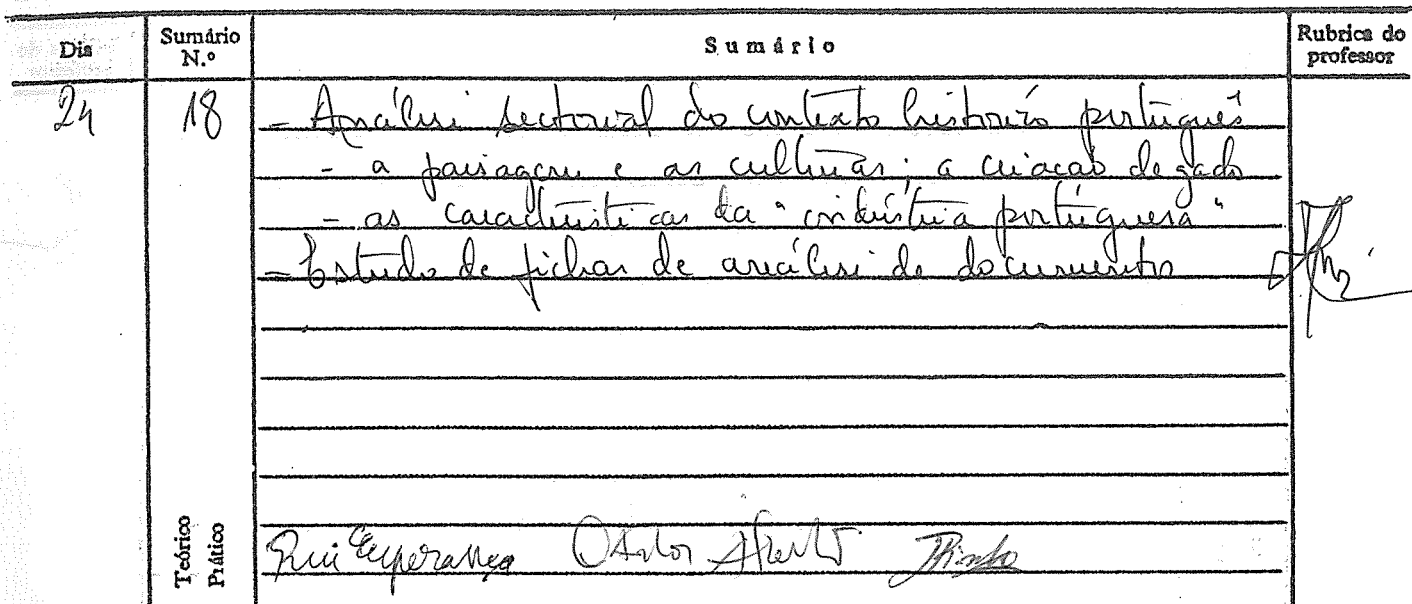 Dia Sumário N.º Sumário Rubrica do professor
24 18 - Análise sectorial do contexto histórico português
- a paisagem e as culturas; a criação de gado
- as características da "indústria portuguesa"
- Estudo de fichas de análise de documentos
Teórico
Prático
Rui Esperança